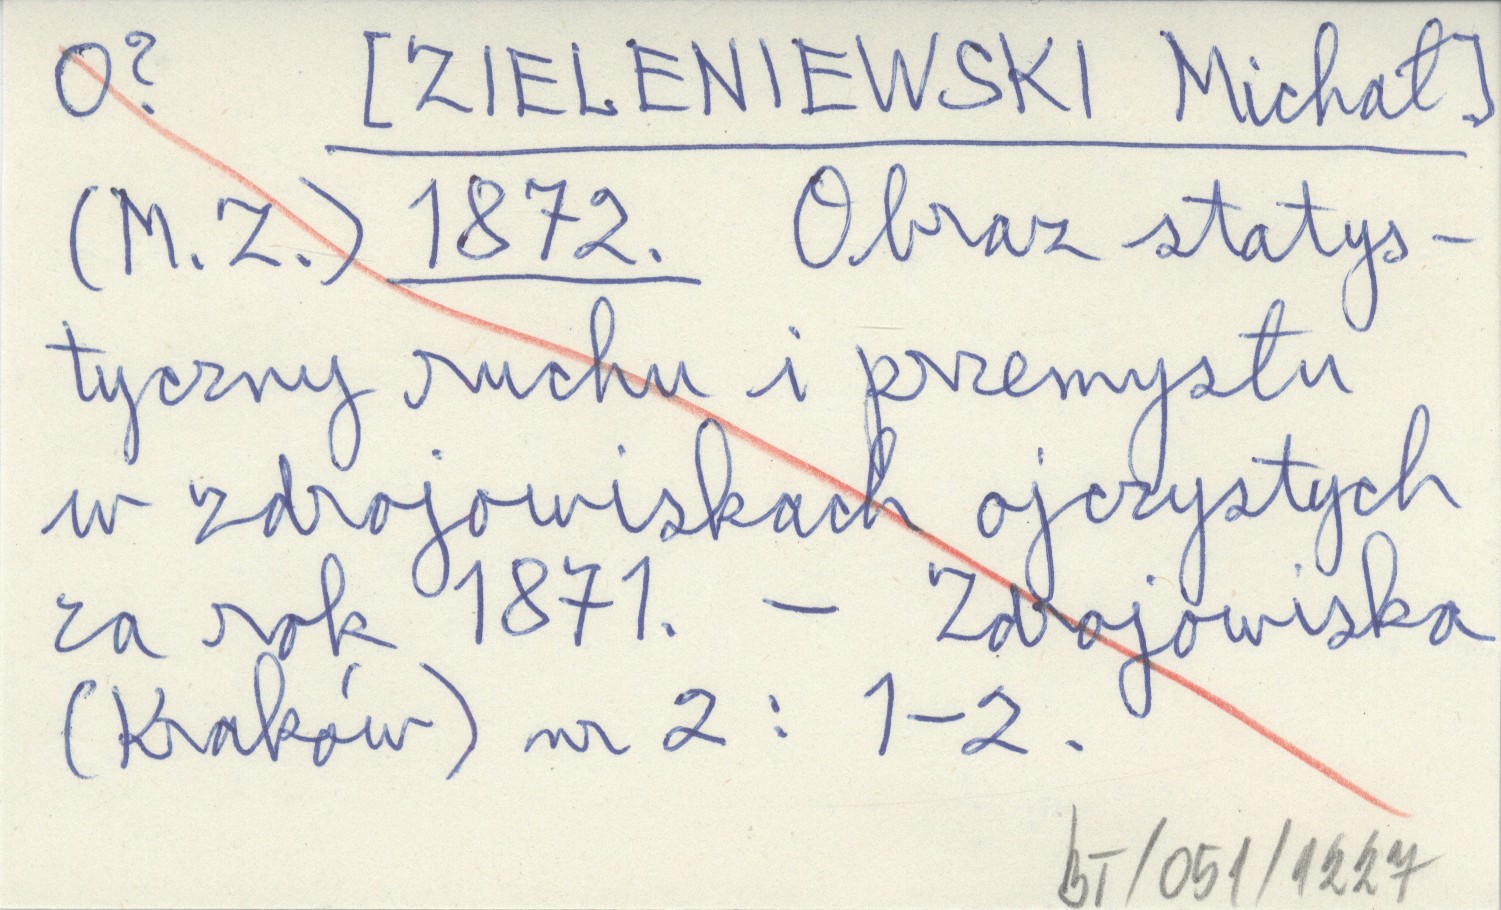 O? [ZIELENIEWSKI Michał]
(M.Z.) 1872. Obraz statys-
tyczny ruchu i przemysłu
w zdrojowiskach ojczystych
za rok 1871. – Zdrojowiska
(Kraków) nr 2 : 1–2.
BT/051/1227